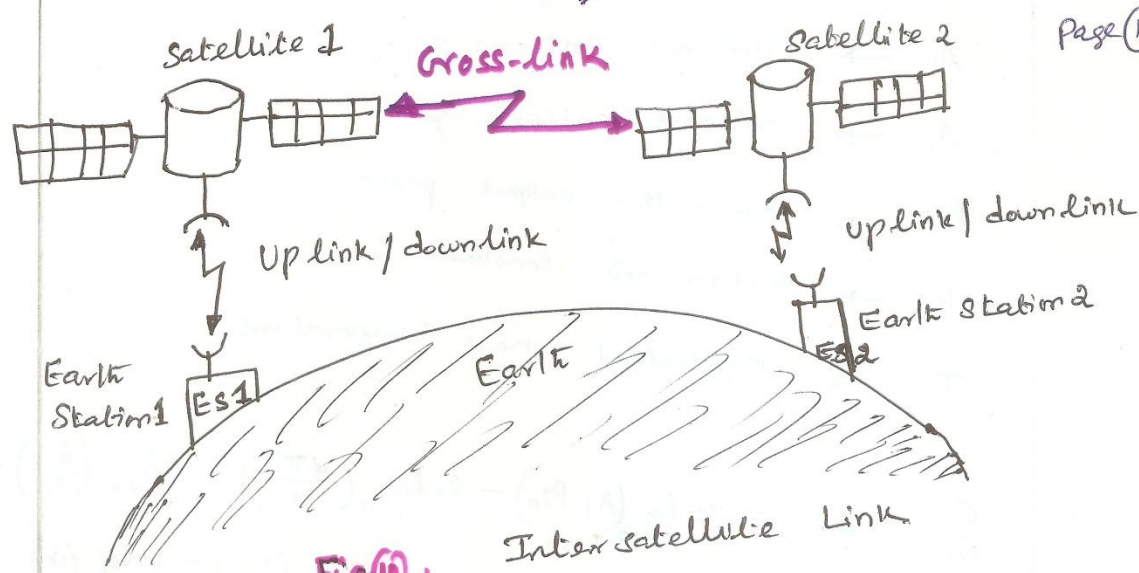 Satellite 1
Cross-link
Satellite 2
Page
Up link / down link
up link / down link
Earth
Station 1
ES1
Earth
ES2
Earth Station 2
Inter satellite Link